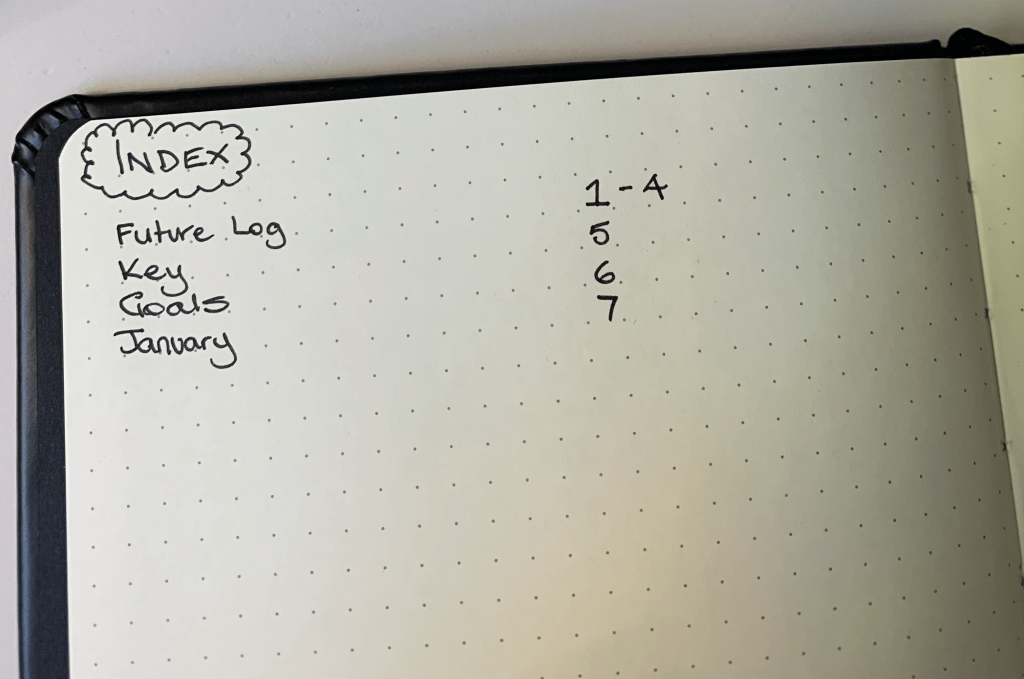 INDEX
Future Log 1-4
Key 5
Goals 6
January 7